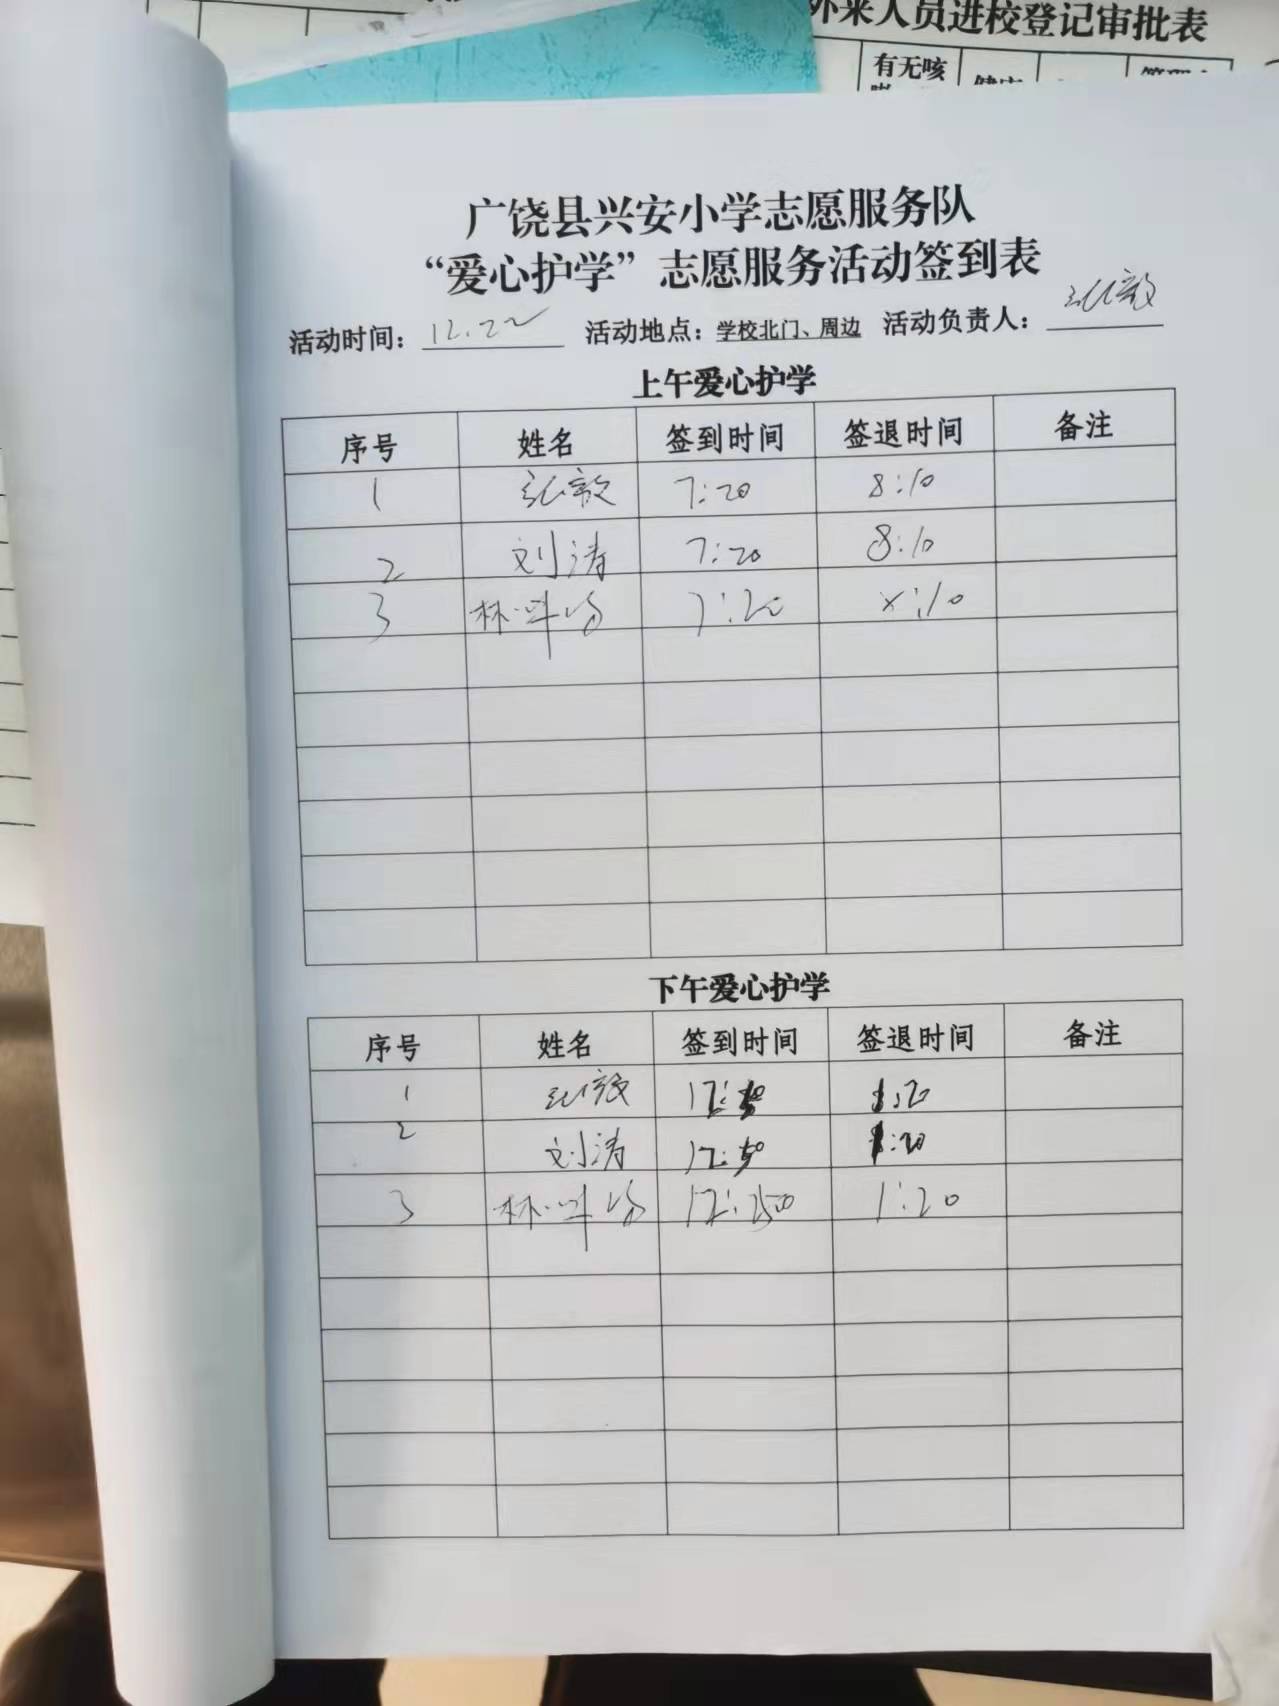 外来人员进校登记审批表
有无咳
广饶县兴安小学志愿服务队
“爱心护学”志愿服务活动签到表
活动时间：12.22 活动地点：学校北门、周边 活动负责人：
上午爱心护学
序号 姓名 签到时间 签退时间 备注
1 7:20 8:10
2 刘涛 7:20 8:10
3 7:20 8:10
下午爱心护学
序号 姓名 签到时间 签退时间 备注
1 1:20
2 刘涛 12:50 1:20
3 1:20